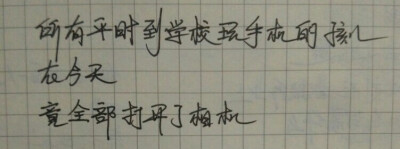 所有平时到学校玩手机的孩儿
在今天
竟全部打开了相机